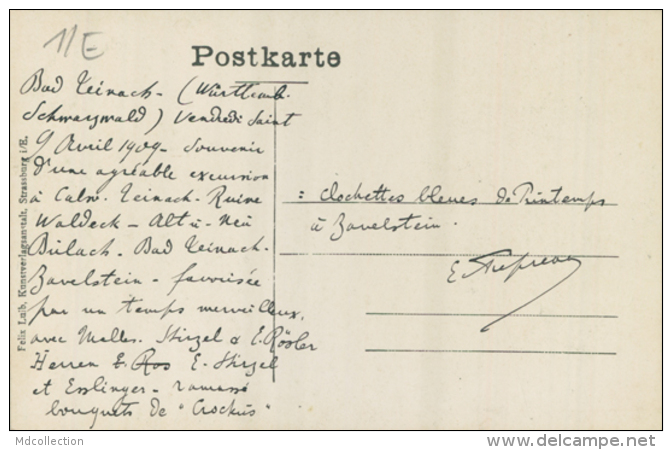 1/E
Postkarte
Bad Teinach - (Württemb.
Schwarzwald) Vendredi Saint
9 Avril 1909 - Souvenir
d'une agréable excursion
à Calw. Teinach - Ruine
Waldeck - Alt u - Neu
Bulach - Bad Teinach -
Zavelstein - favorisée
par un temps merveilleux,
avec Melles. Hirzel & E. Rösler
Herren E. Hirzel
et Esslinger - ramassé
bouquets de "Crockus"
: clochettes bleues de Printemps
à Zavelstein.
Felix Luib, Kunstverlagsanstalt, Strassburg i/E.
Mdcollection
www.delcampe.net